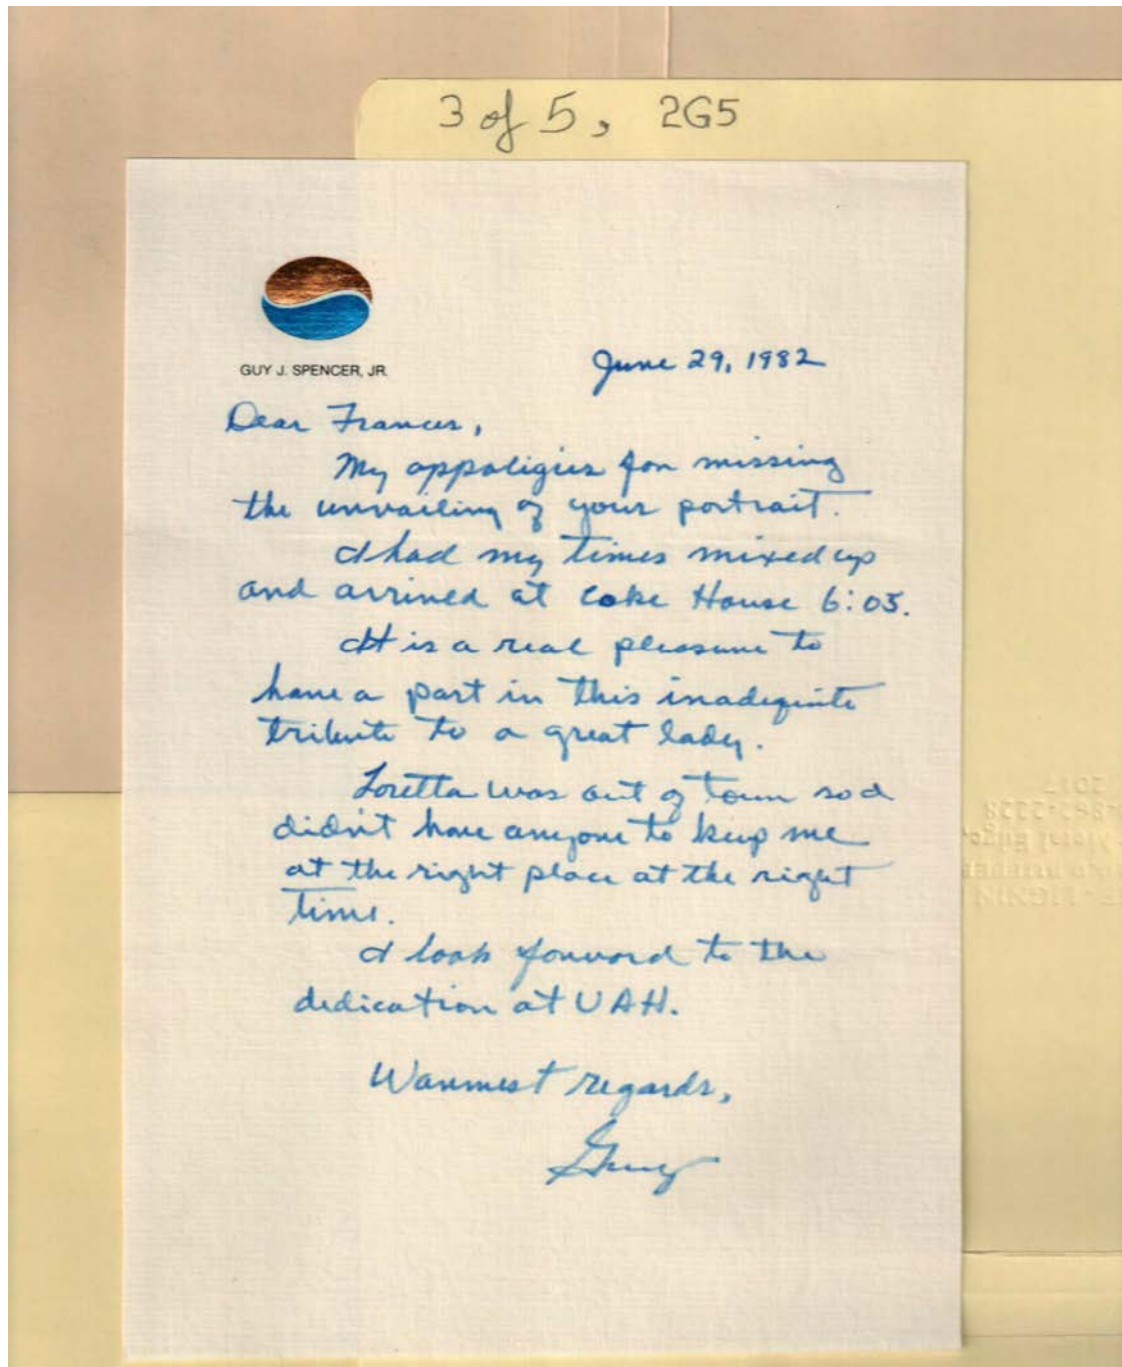 3 of 5, 2G5
GUY J. SPENCER, JR.
June 29, 1982
Dear Frances,
My appoligies for missing
the unvailing of your portrait.
I had my times mixed up
and arrived at Coke House 6:05.
It is a real pleasure to
have a part in this inadequite
tribute to a great lady.
Loretta was out of town so I
didn't have anyone to keep me
at the right place at the right
time.
I look forward to the
dedication at UAH.
Warmest regards,
Guy